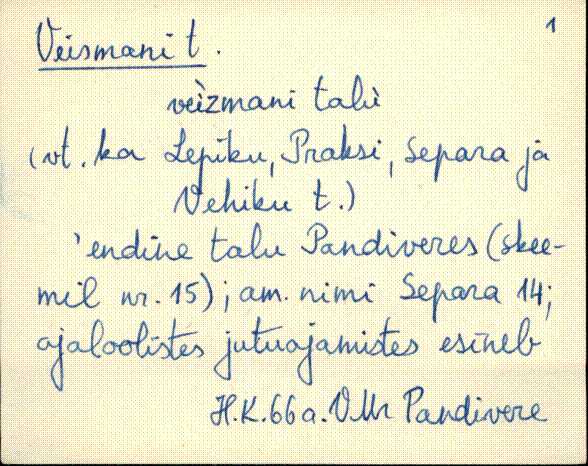 1
Veismani t.
veìzmani talù
(vt. ka Lepiku, Praksi, Separa ja
Vehiku t.)
'endine talu Pandiveres (skee-
mil nr. 15); am. nimi Separa 14;
ajaloolistes jutuajamistes esineb
H.K.66a. VMr Pandivere